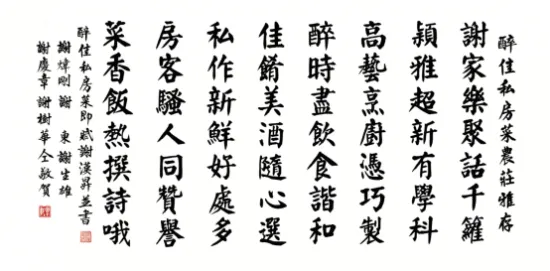 醉佳私房菜農莊雅存
謝家樂聚話千籮
潁雅超新有學科
高藝烹廚憑巧製
醉時盡飲食諧和
佳餚美酒隨心選
私作新鮮好處多
房客騷人同贊譽
菜香飯熱撰詩哦
醉佳私房菜即賦謝漢昇並書
謝煒剛 謝東 謝生雄
謝慶章 謝樹華仝敬賀